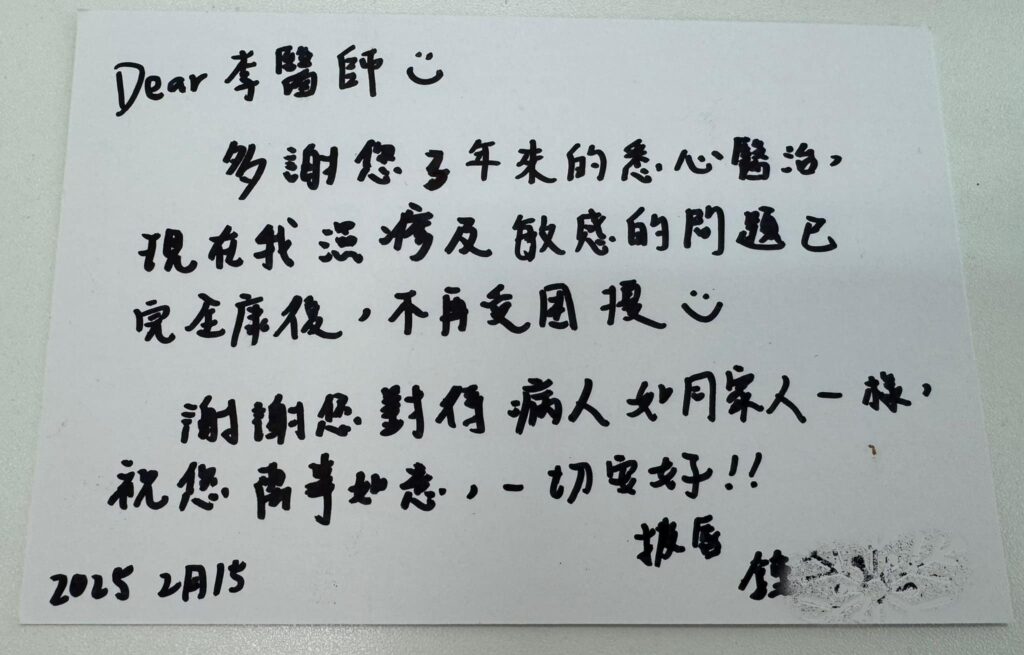 Dear 李醫師
多謝您3年來的悉心醫治，
現在我濕疹及敏感的問題已
完全康復，不再受困擾
謝謝您對待病人如同家人一樣，
祝您萬事如意，一切安好!!
2025 2月15